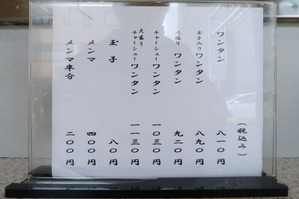 (税込み)
ワンタン 八一〇円
玉子入りワンタン 八九〇円
大盛りワンタン 九二〇円
チャーシューワンタン 一〇三〇円
大盛りチャーシューワンタン 一一三〇円
玉子 八〇円
メンマ 四〇〇円
メンマ単合 二〇〇円